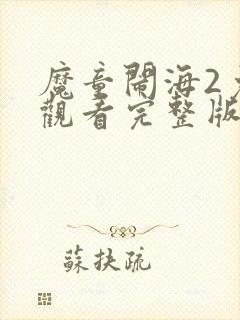 魔童鬧海2
觀看完整版
蘇扶疏